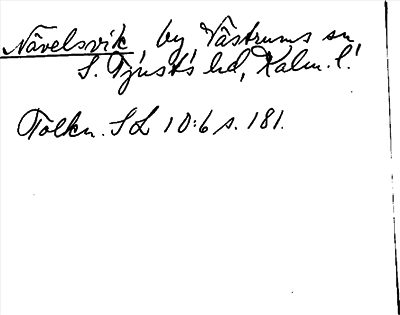 Nävelsvik, by, Västrums sn,
S. Tjusts hd, Kalm. l.
Tolkn. SL 10:6 s. 181.